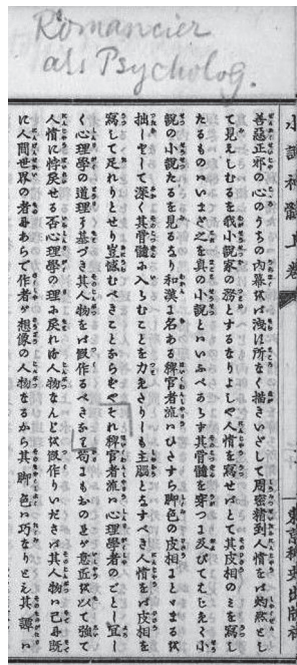 Romancier
als Psycholog.
小説神髄上巻
東京稗史出版社
善惡正邪の心のうちの内幕をば洩す所なく描きいだして周密精到人情をば灼然とし
て見えしむるを我小説家の務とするなりよしや人情を寫せばとて其皮相のミを寫し
たるものハいまだ之を真の小説とハいふべからず其骨髄を穿つに及びてはじめて小
説の小説たるを見るなり和漢に名ある稗官者流ハひたすら脚色の皮相にとゞまるを
拙しとして深く其骨髄に入らむことを力めたりしも主脳となすべき人情をば皮相を
寫して足れりとせり豈憾むべきことならずや夫れ稗官者流ハ心理學者のごとし宜し
く心理學の道理に基づき其人物をば假作るべきなり苟にもおのれが意匠を以て強て
人情に悖戻せる否心理學の理に戻れる人物なんどを假作りいださバ其人物ハ已に既
に人間世界の者にあらで作者が想像の人物なるから其脚色ハ巧なりとも其譚ハ